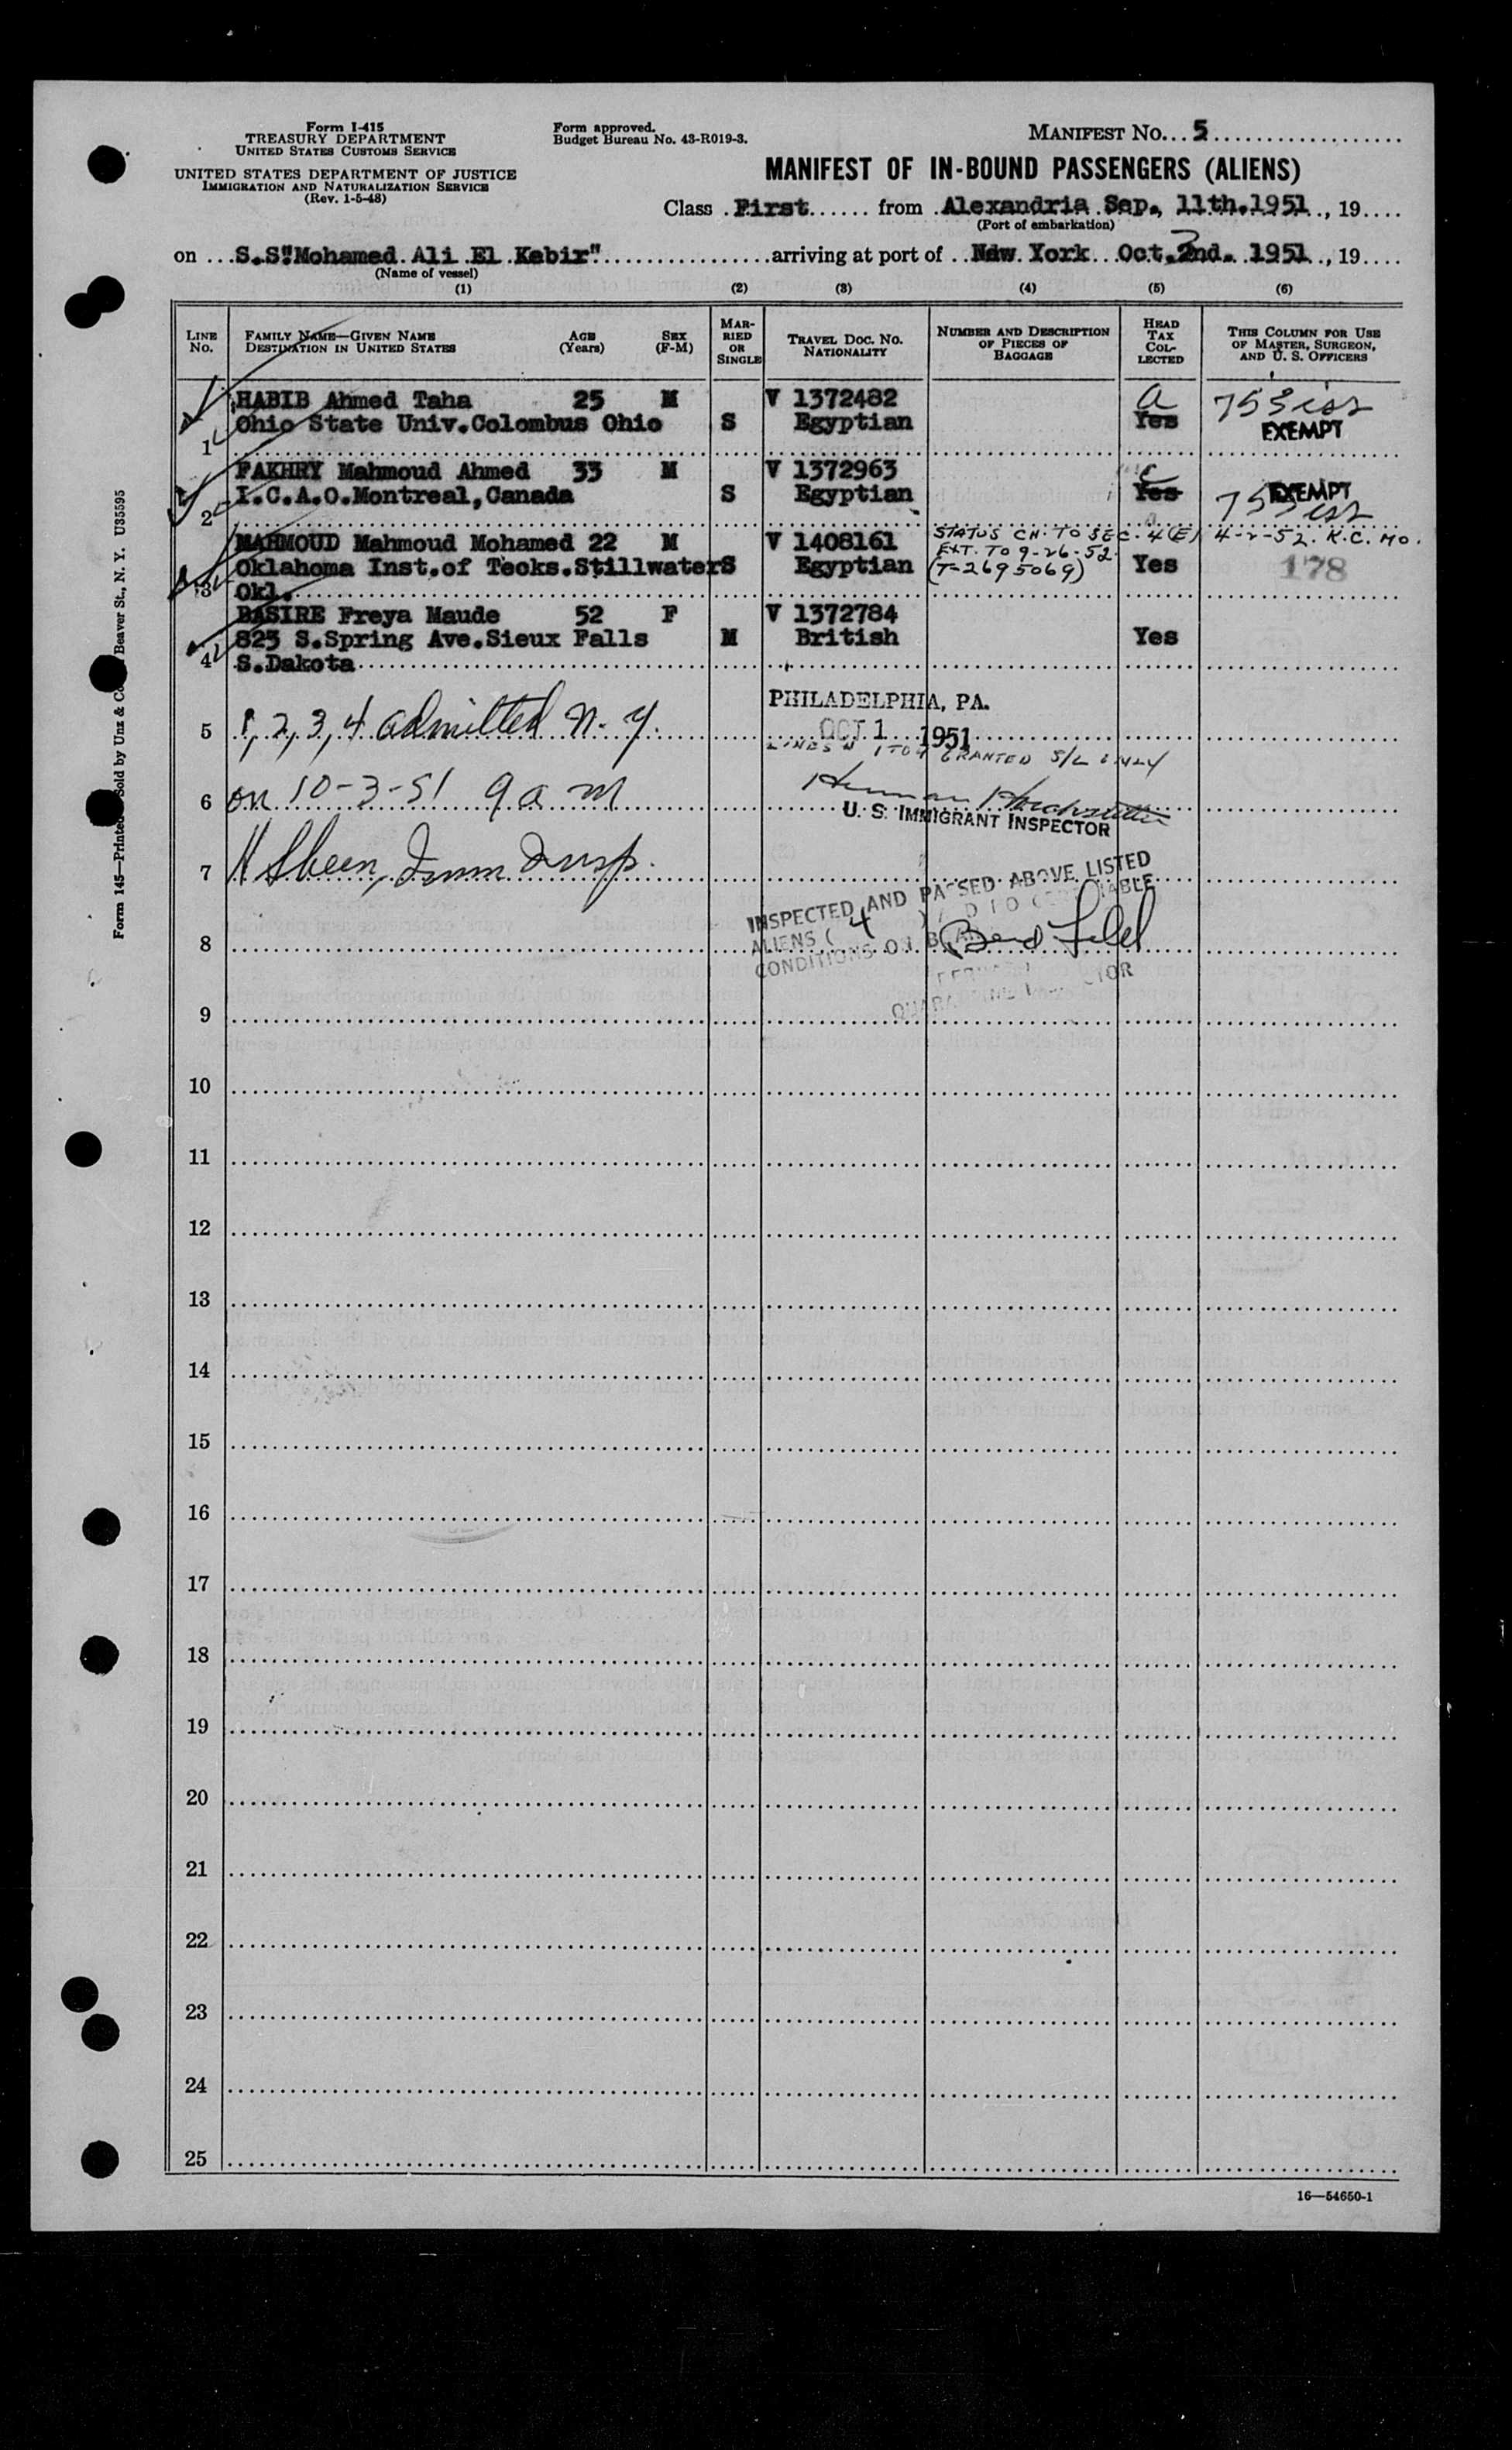 Form I-415
TREASURY DEPARTMENT
UNITED STATES CUSTOMS SERVICE
UNITED STATES DEPARTMENT OF JUSTICE
IMMIGRATION AND NATURALIZATION SERVICE
(Rev. 1-5-48)
Form approved.
Budget Bureau No. 43-R019-3.
MANIFEST NO... 5
MANIFEST OF IN-BOUND PASSENGERS (ALIENS)
Class First from Alexandria Sep. 11th.1951, 19
(Port of embarkation)
on S.S"Mohamed Ali El Kebir" arriving at port of New York Oct. 2nd. 1951, 19
3
(Name of vessel)
(1) (2) (3) (4) (5) (6)
LINE NO.
FAMILY NAME—GIVEN NAME
DESTINATION IN UNITED STATES
AGE (Years)
SEX (F-M)
MARRIED OR SINGLE
TRAVEL DOC. NO.
NATIONALITY
NUMBER AND DESCRIPTION OF PIECES OF BAGGAGE
HEAD TAX COLLECTED
THIS COLUMN FOR USE OF MASTER, SURGEON, AND U. S. OFFICERS
HABIB Ahmed Taha 25 M V 1372482 a
1 Ohio State Univ.Colombus Ohio S Egyptian Yes EXEMPT
FAKHRY Mahmoud Ahmed 33 M V 1372963
2 I.C.A.O.Montreal,Canada S Egyptian Yes EXEMPT
MAHMOUD Mahmoud Mohamed 22 M V 1408161 STATUS CH. TO SEC. 4(E) 4-2-52. K.C. MO.
EXT. TO 9-26-52.
3 Oklahoma Inst.of Tecks.Stillwater S Egyptian (T-2695069) Yes 178
Okl.
BASIRE Freya Maude 52 F V 1372784
4 823 S.Spring Ave.Sieux Falls M British Yes
S.Dakota
PHILADELPHIA, PA.
5 1, 2, 3, 4 admitted N. Y. OCT 1 1951
LINES 1 TO 4 GRANTED S/L ONLY
6 on 10-3-51 9 a m
U. S. IMMIGRANT INSPECTOR
7
INSPECTED AND PASSED ABOVE LISTED
ALIENS ( 4 )
8 CONDITIONS ON
9
10
11
12
13
14
15
16
17
18
19
20
21
22
23
24
25
16—54650-1
Form 145—Printed Sold by Unz & Co Beaver St., N. Y. U35595